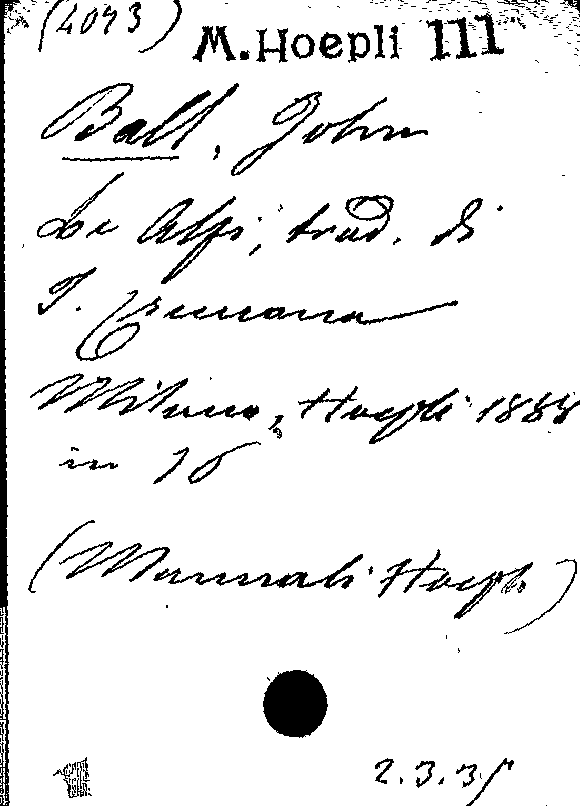 (2043)
M. Hoepli 111
Ball, John
Le Alpi, trad. di
I. Cremona
Milano, Hoepli 1888
in 16
(Manuali Hoepli)
2.3.35